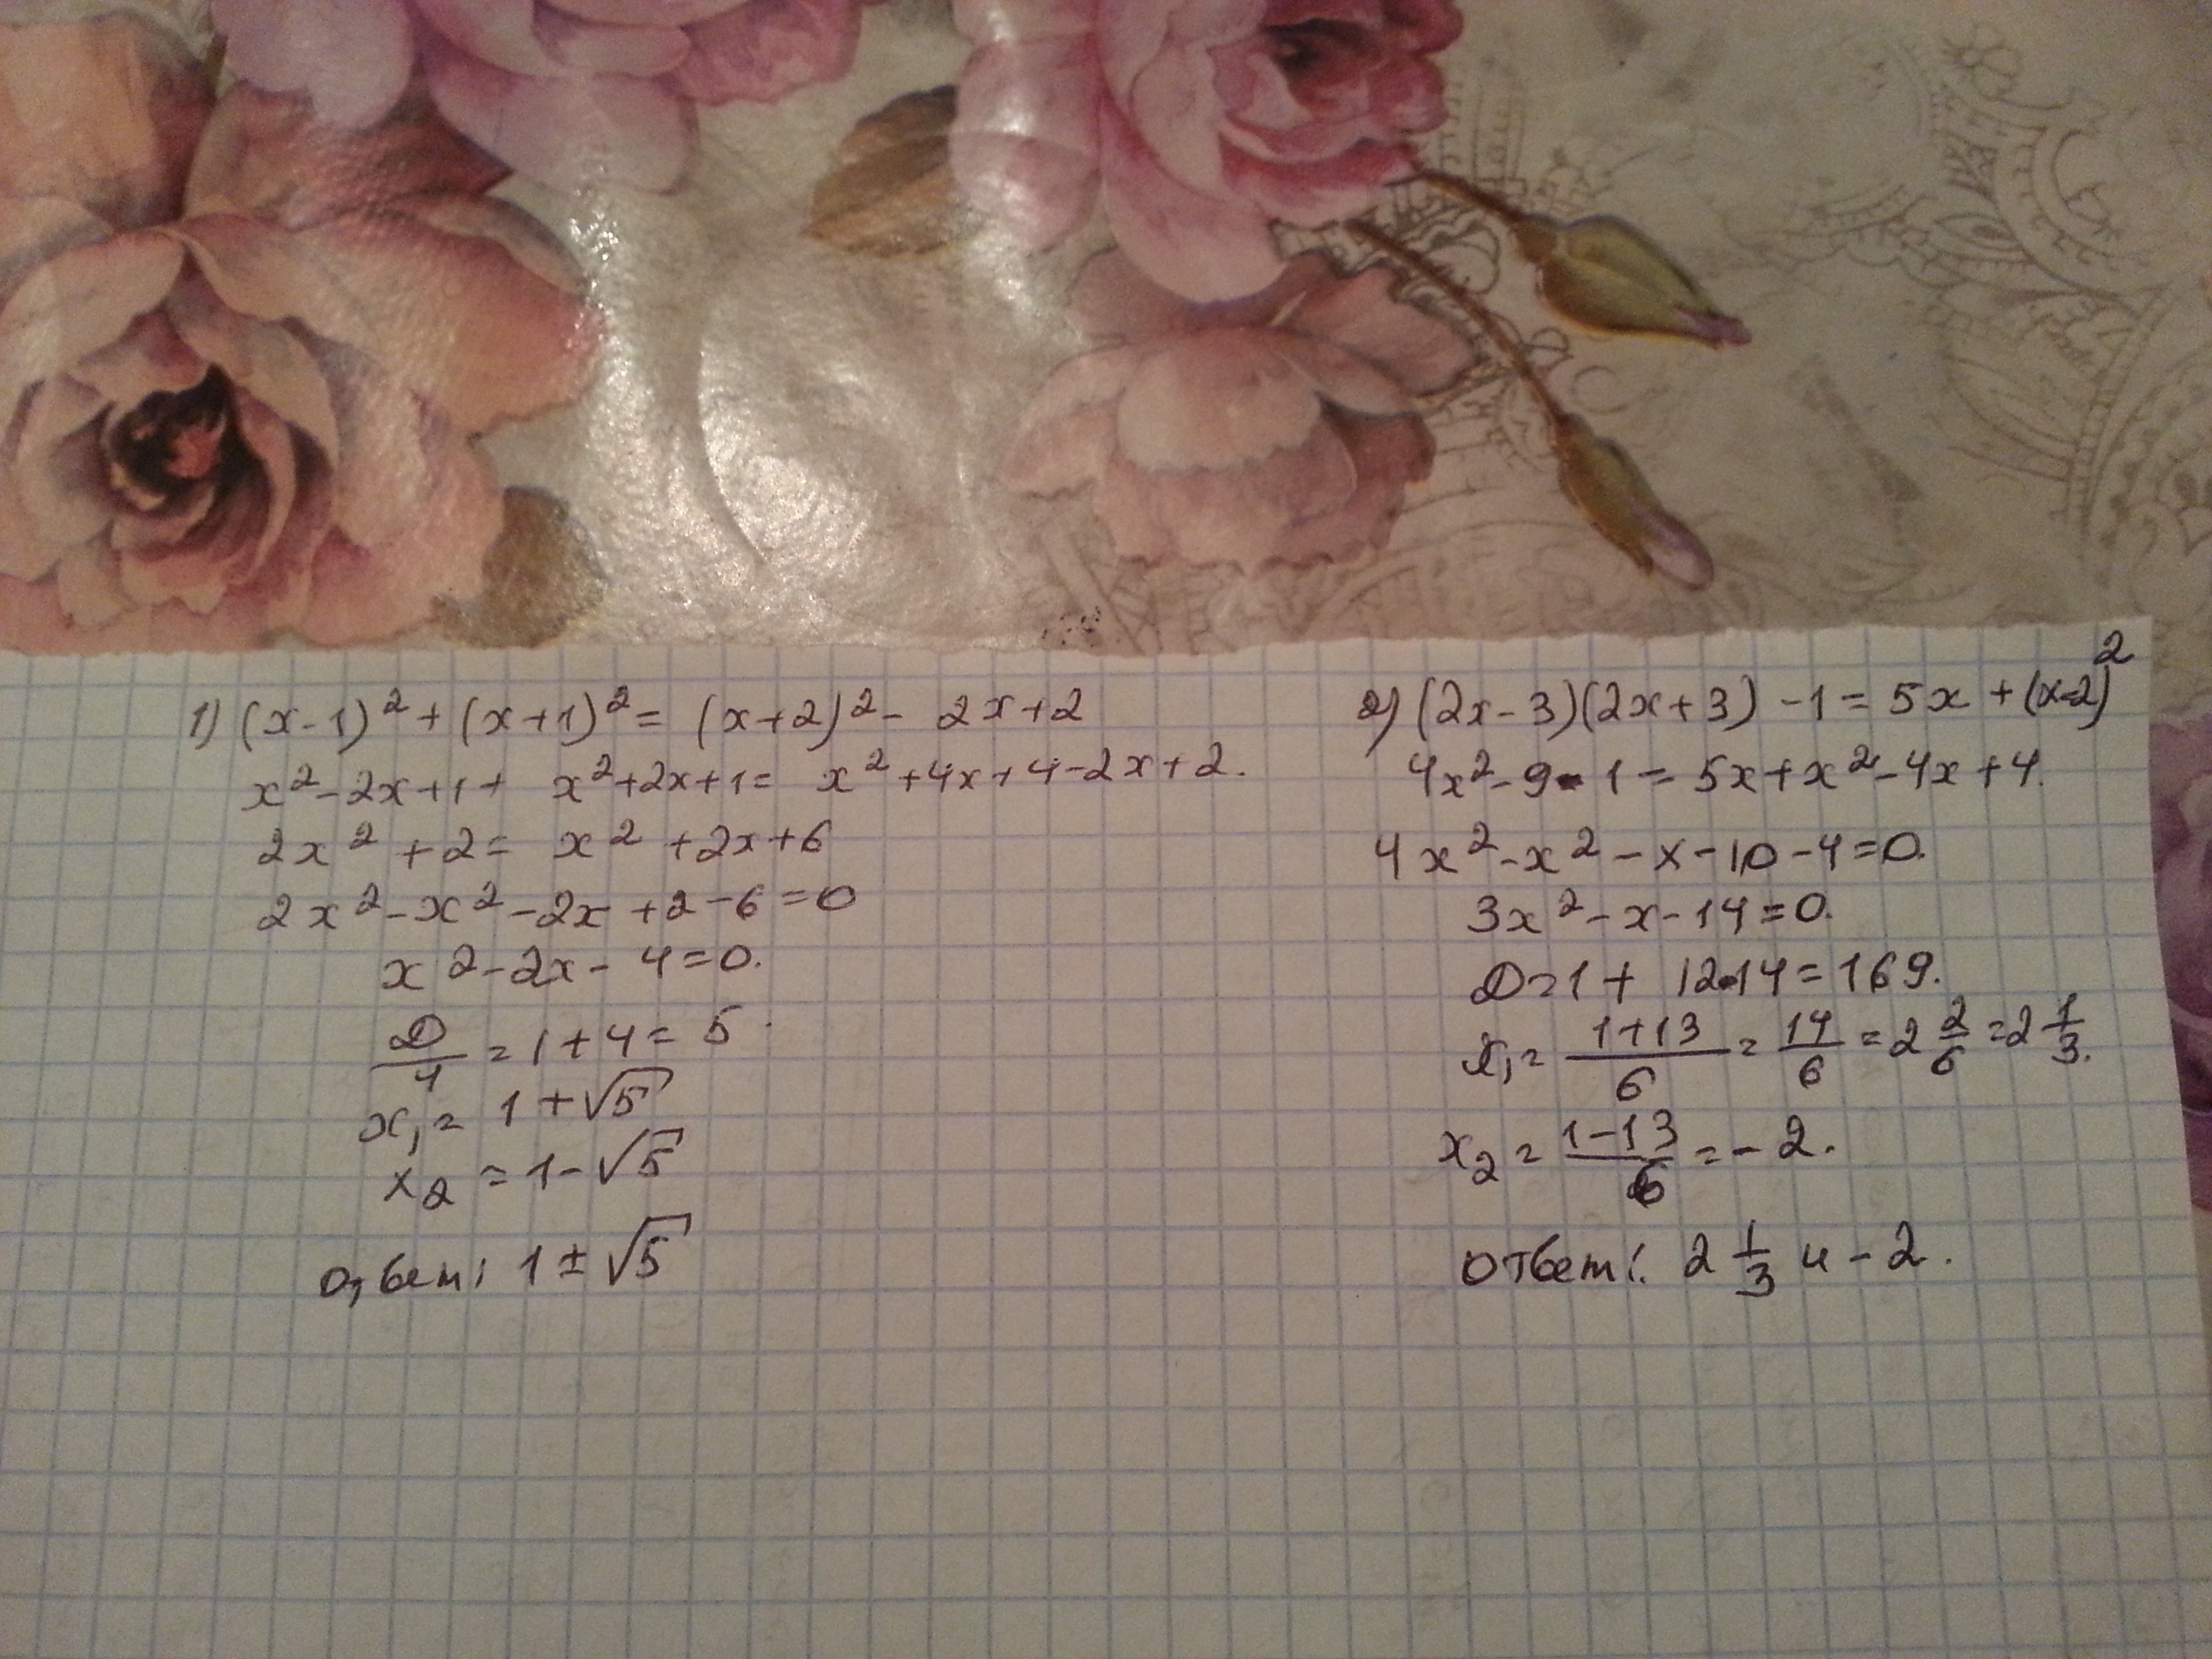 1) (x-1)² + (x+1)² = (x+2)² - 2x+2
x²-2x+1+ x²+2x+1= x²+4x+4-2x+2.
2x² +2= x² +2x+6
2x²-x²-2x+2-6=0
x²-2x-4=0.
D/4 = 1+4= 5.
x₁= 1+√5
x₂ = 1-√5
Ответ: 1±√5
2) (2x-3)(2x+3) -1= 5x +(x-2)²
4x²-9-1=5x+x²-4x+4.
4x²-x²-x-10-4=0.
3x²-x-14=0.
D=1+ 12·14=169.
x₁= (1+13)/6 = 14/6 = 2 2/6 =2 1/3.
x₂= (1-13)/6 =-2.
Ответ: 2 1/3 и -2.